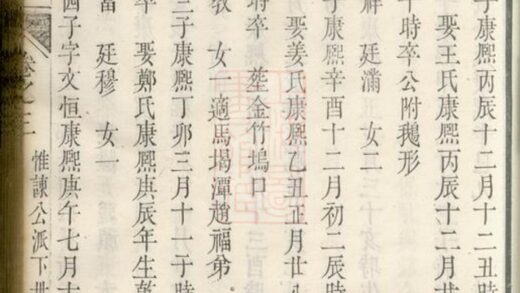 子康熙丙辰十二月十二丑時
娶王氏康熙丙辰十二月廿
午時卒公附鵝形
祥 廷滿 女二
子康熙辛酉十二月初二辰時
娶姜氏康熙乙丑正月廿八
時卒 塟金竹塢口
教 女一適馬堨潭趙福弟
三子康熙丁卯三月十一子時
卒 娶鄭氏康熙庚辰年生乾
富 廷穆 女一
四子字文恒康熙庚午七月十
惟諫公派下世
卷之三